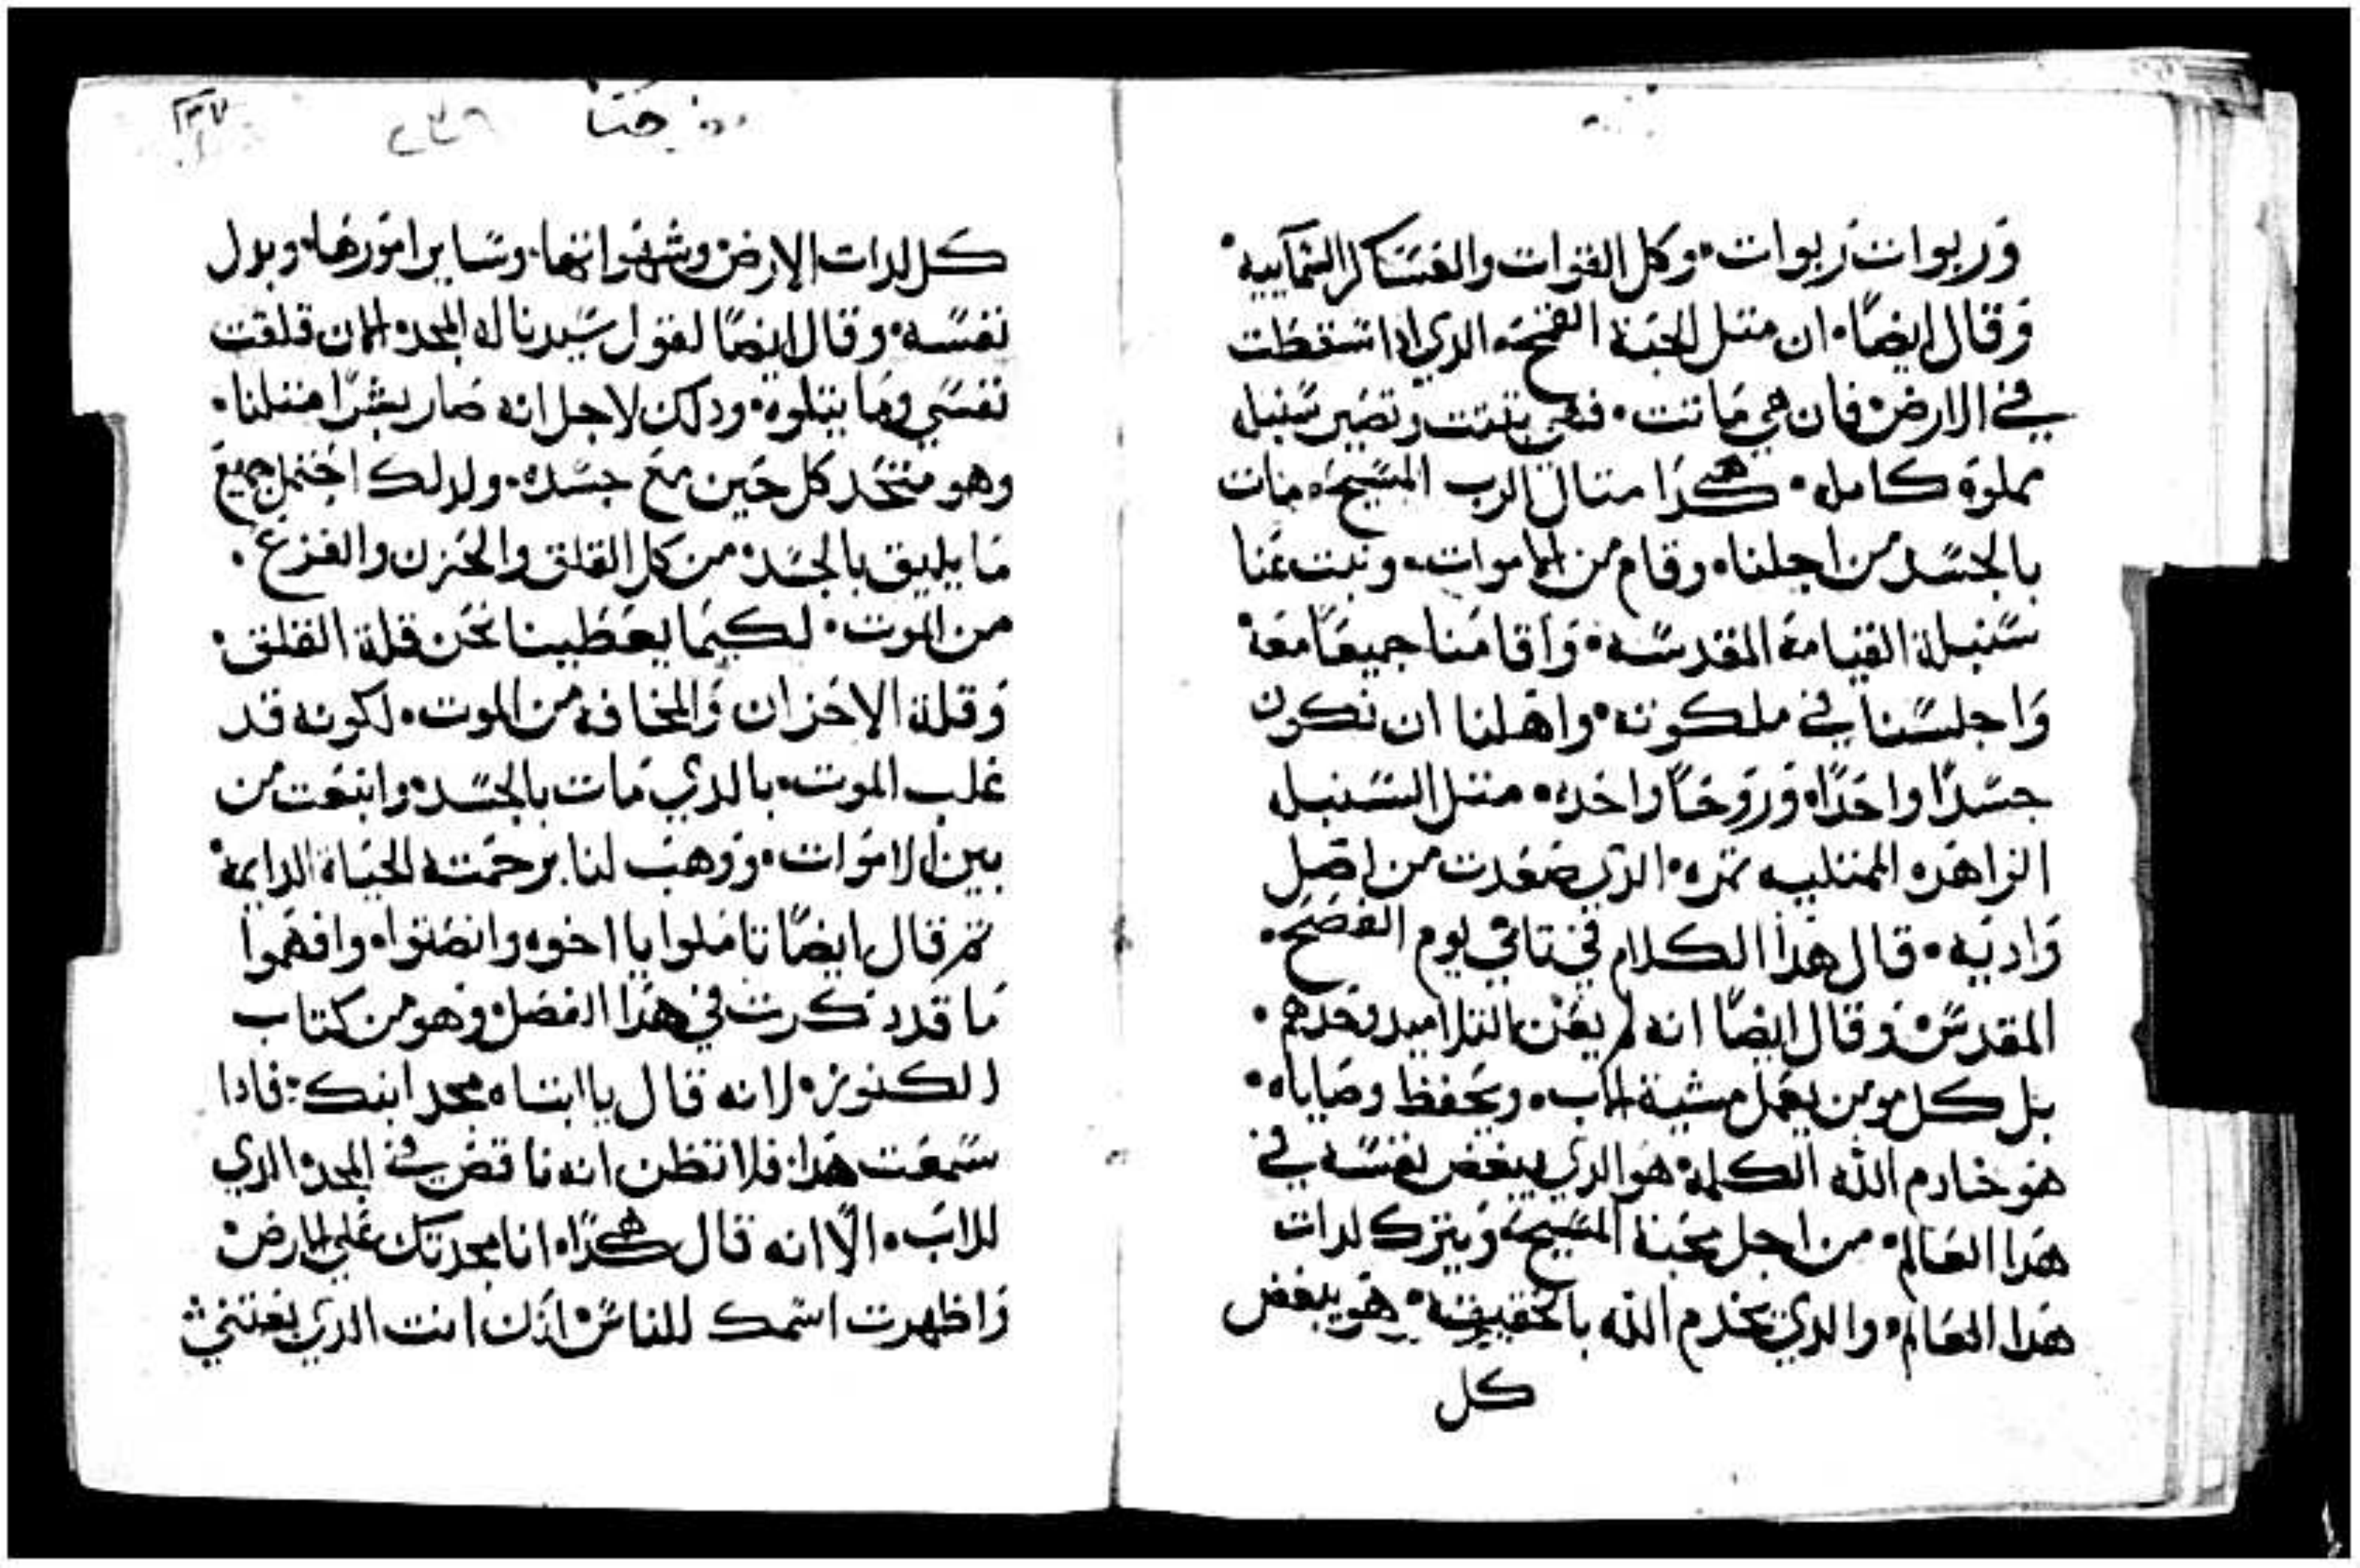 وربوات ربوات. وكل القوات والعساكر السماييه.
وقال ايضا. ان متل الحبة القمح. الدي ادا سقطت
في الارض فان هي ماتت. فهي تنبت وتصير سنبله
مملوه كامله. هكدا متال الرب المسيح. مات
بالجسد من اجلنا. وقام من الاموات. ونبت عنا
سنبلة القيامة المقدسه. واقامنا جميعا معه
واجلسنا في ملكوته. واهلنا ان نكون
جسدا واحدا. وروحا واحده. متل السنبله
الزاهره الممتليه تمره. الدي صعدت من اصل
واديه. قال هدا الكلام في تاني يوم الفصح.
المقدس. وقال ايضا انه لم يعني التلاميد وحدهم.
بل كل مومن يعمل مشية الاب. ويحفظ وصاياه.
هو خادم الله الكلمة. هو الدي يبغض نفسه في
هدا العالم. من اجل محبة المسيح. ويترك لدات
هدا العالم. والدي يخدم الله بالحقيقه. هو يبغض
كل
حنا
كل لدات الارض وشهواتها. وساير امورها. وبدل
نفسه. وقال ايضا لقول سيدنا له المجد. الان قلقت
نفسي وما يتلوه. ودلك لاجل انه صار بشرا متلنا.
وهو متحد كل حين مع جسده. ولدلك احتمل جميع
ما يليق بالجسد. من كل القلق والحزن والفزع.
من الموت. لكيما يعطينا نحن قلة القلق.
وقلة الاحزان والمخافه من الموت. لكونه قد
غلب الموت. بالدي مات بالجسد. وانبعت من
بين الاموات. ووهب لنا برحمته الحياة الدايمة.
تم قال ايضا تاملوا يا اخوه وانصتوا. وافهموا
ما قد دكرت في هدا الفصل. وهو من كتاب
الكنوز. لانه قال يا ابتاه مجد ابنك. فادا
سمعت هدا. فلا تظن انه ناقص في المجد. الدي
للاب. الا انه قال هكدا. انا مجدتك علي الارض.
واظهرت اسمك للناس. ادن انت الدي بعتني